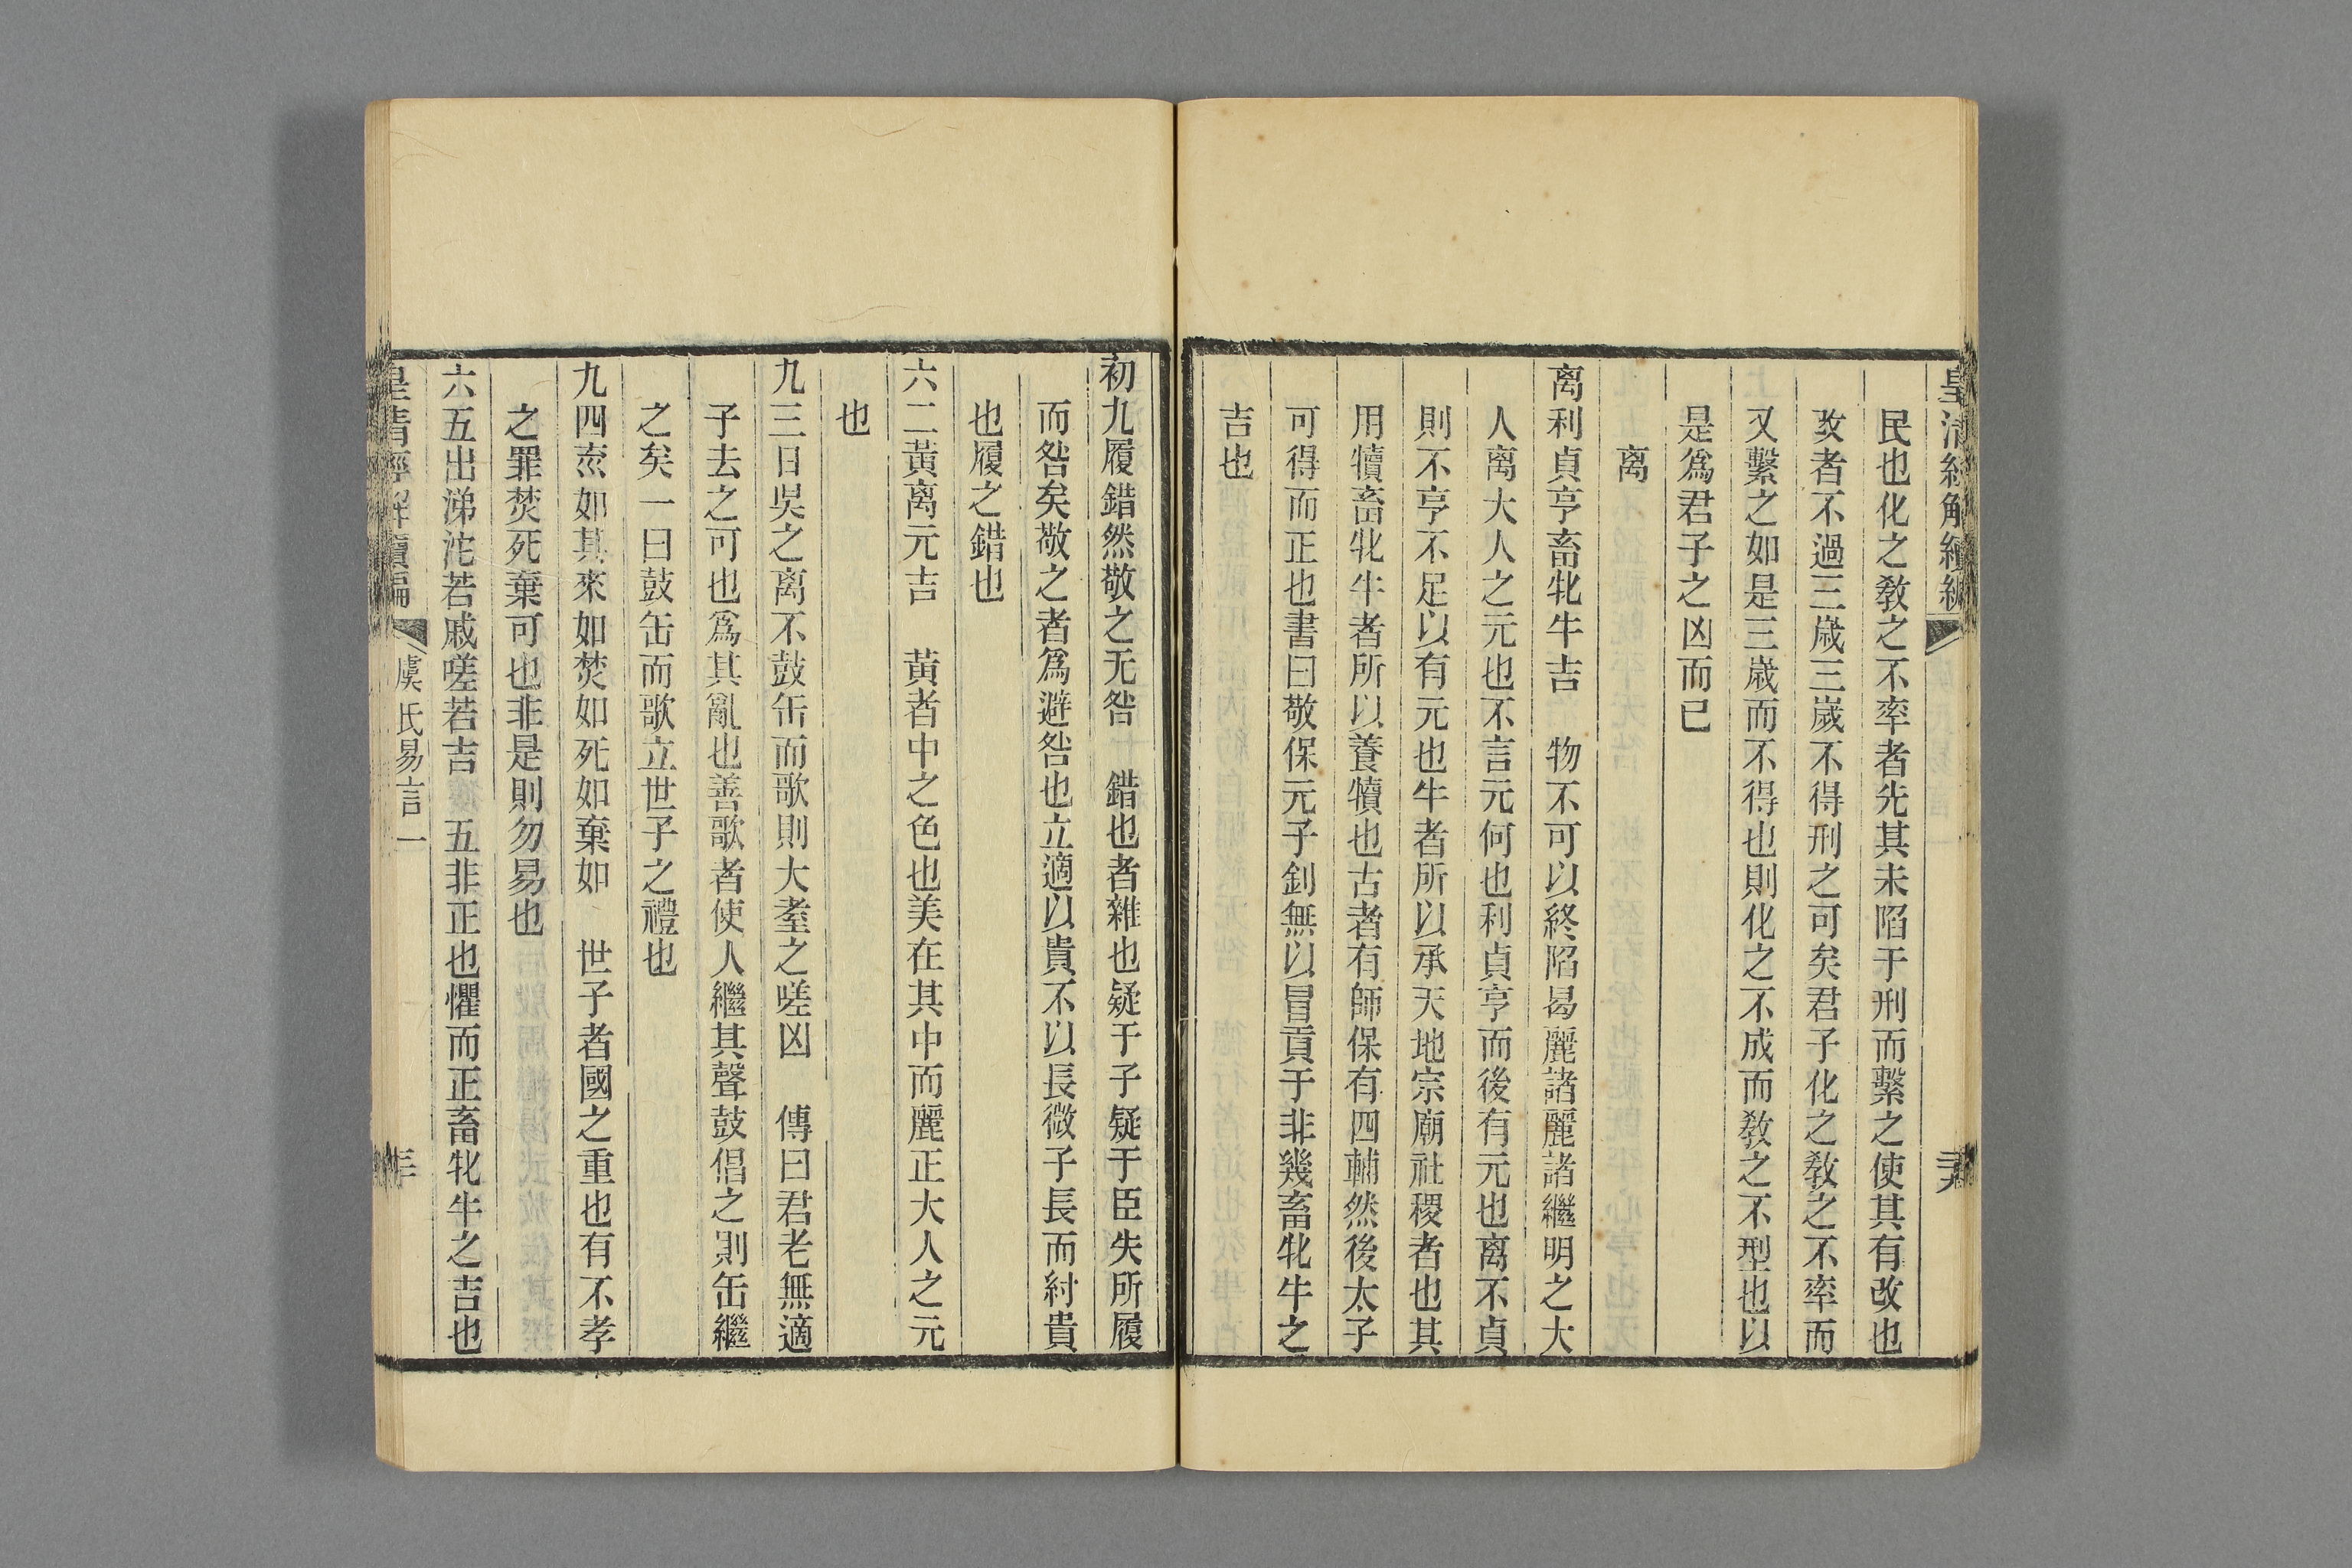 皇清經解續編
民也化之敎之不率者先其未陷于刑而繫之使其有改也
攺者不過三歲三歲不得刑之可矣君子化之敎之不率而
又繫之如是三歲而不得也則化之不成而敎之不型也以
是爲君子之凶而已
离
离利貞亨畜牝牛吉　物不可以終陷曷麗諸麗諸繼明之大
人离大人之元也不言元何也利貞亨而後有元也离不貞
則不亨不足以有元也牛者所以承天地宗廟社稷者也其
用犢畜牝牛者所以養犢也古者有師保有四輔然後太子
可得而正也書曰敬保元子釗無以冒貢于非幾畜牝牛之
吉也
初九履錯然敬之无咎　錯也者雜也疑于子疑于臣失所履
而咎矣敬之者爲避咎也立適以貴不以長微子長而紂貴
也履之錯也
六二黃离元吉　黃者中之色也美在其中而麗正大人之元
也
九三日吳之离不鼓缶而歌則大耋之嗟凶　傳曰君老無適
子去之可也爲其亂也善歌者使人繼其聲鼓倡之則缶繼
之矣一曰鼓缶而歌立世子之禮也
九四㚇如其來如焚如死如棄如　世子者國之重也有不孝
之罪焚死棄可也非是則勿易也
六五出涕沱若戚嗟若吉　五非正也懼而正畜牝牛之吉也
皇清經解續編
虞氏易言一